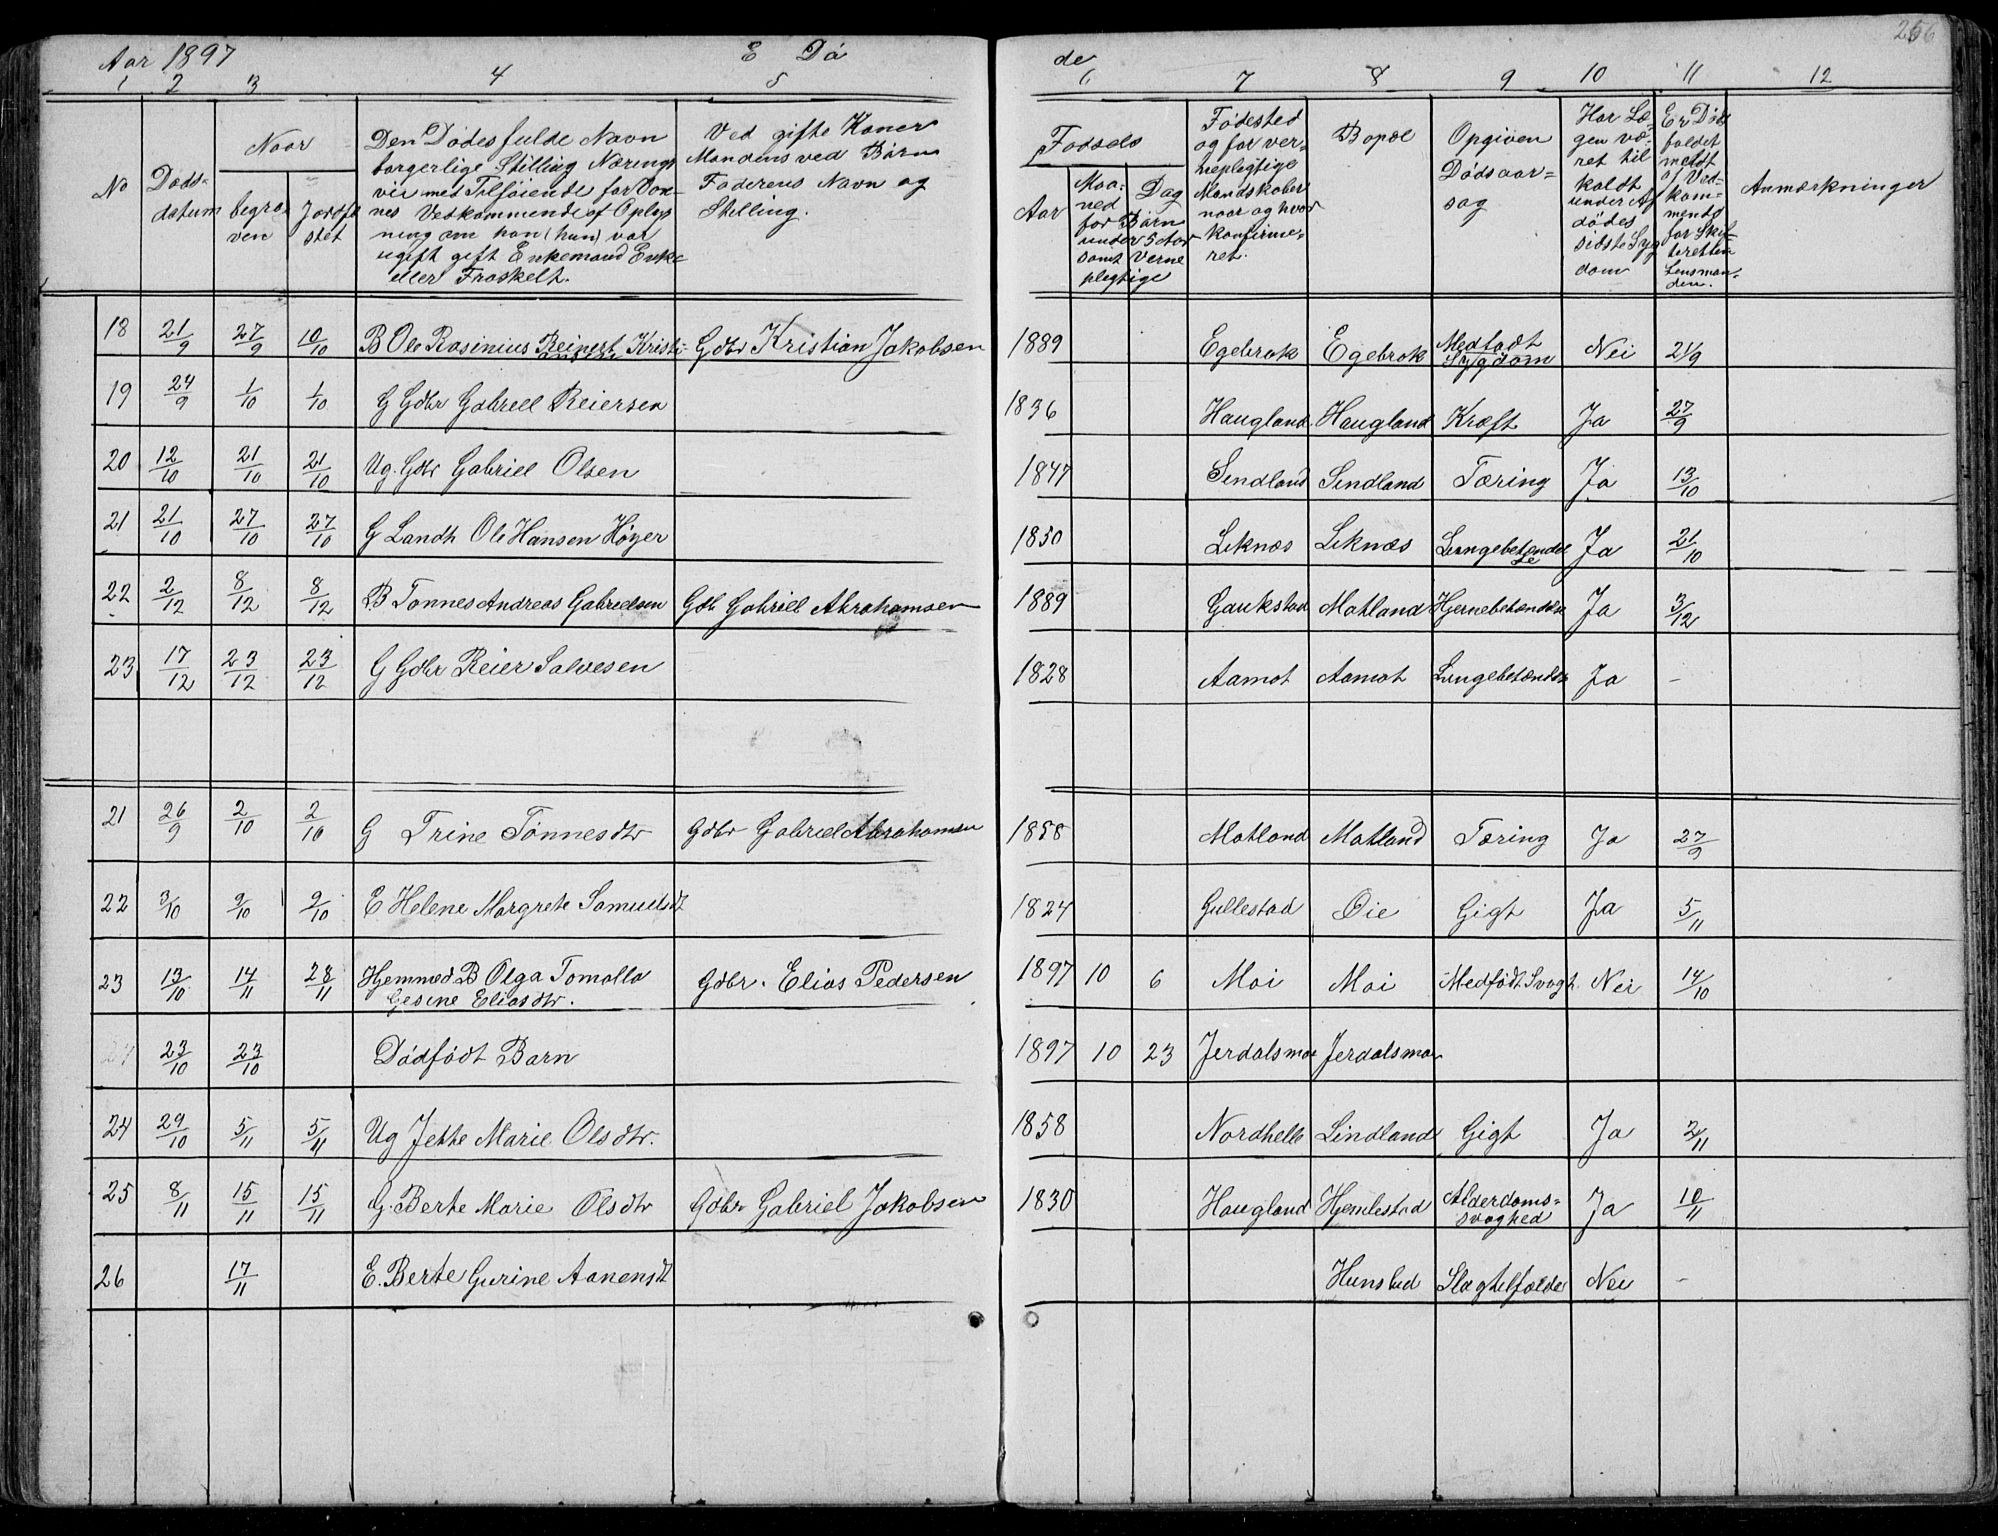 Aar 1897 E Dö de 256
1 2 3 4 5 6 7 8 9 10 11 12
No Döds-datum Naar begra-ven Jordfæ-stet Den Dödes fulde Navn borgerlige Stilling Nærings-vei med Tilföiende for Vox-nes Vedkommende af Oplys-ning om han (hun) var ugift gift Enkemand Enke eller Fraskelt. Ved gifte Koner Mandens ved Börn Faderens Navn og Stilling. Födsels Aar Maa-ned Dag for Börn under 5 Aar samt Verne plegtige Födested og for ver-neplegtige Mandskaber naar og hvor konfirme-ret. Bopæl Opgiven Dödsaar-sag Har Læ-gen væ-ret til kaldt under Af dödes sidste Syg dom Er Döds faldet meldt af Ved-kom-mende for Skif-teretten Lensman-den. Anmærkninger
18 21/9 27/9 10/10 B Ole Rasinius Reinert Kristi- Gdbr Kristian Jakobsen 1889 Egebrok Egebrok Medfödt Sygdom Nei 21/9
19 24/9 1/10 1/10 G Gdbr Gabriell Reiersen 1836 Haugland Haugland Kræft Ja 27/9
20 12/10 21/10 21/10 Ug. Gdbr Gabriel Olsen 1847 Sindland Sindland Tæring Ja 13/10
21 21/10 27/10 27/10 G Landh Ole Hansen Höyer 1850 Liknæs Liknæs Lungebetændel se Ja 21/10
22 2/12 8/12 8/12 B Tönnes Andreas Gabrielsen Gdb Gabriel Abrahamsen 1889 Gaukstad Matland Hjernebetændelse Ja 3/12
23 17/12 23/12 23/12 G Gdbr Reier Salvesen 1828 Aamot Aamot Lungebetændelse Ja -
21 26/9 2/10 2/10 G Trine Tönnesdtr Gdbr Gabriel Abrahamsen 1858 Matland Matland Tæring Ja 27/9
22 3/10 9/10 9/10 E Helene Margrete Samuelsdt 1824 Gullestad Öie Gigt Ja 5/11
23 13/10 14/11 28/11 Hjemmed. B Olga Tomalla Gdbr. Elias Pedersen 1897 10 6 Moi Moi Medfödt Svagh. Nei 14/10
Gesine Eliasdtr.
24 23/10 23/10 Dödfödt Barn 1897 10 23 Jerdalsmo Jerdalsmo
24 29/10 5/11 5/11 Ug Jette Marie Olsdtr. 1858 Nordhelle Lindland Gigt Ja 2/11
25 8/11 15/11 15/11 G. Berte Marie Olsdtr Gdbr Gabriel Jakobsen 1830 Haugland Hjemlestad Alderdoms-svaghed Ja 10/11
26 17/11 E. Berte Gurine Aanensdt Hunstad Slagtilfælde Nei -